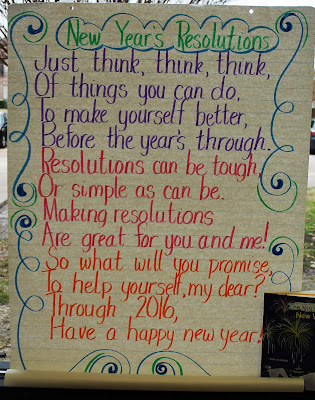 New Year's Resolutions
Just think, think, think,
Of things you can do,
To make yourself better,
Before the year's through.
Resolutions can be tough,
Or simple as can be.
Making resolutions
Are great for you and me!
So what will you promise,
To help yourself, my dear?
Through 2016,
Have a happy new year!
New